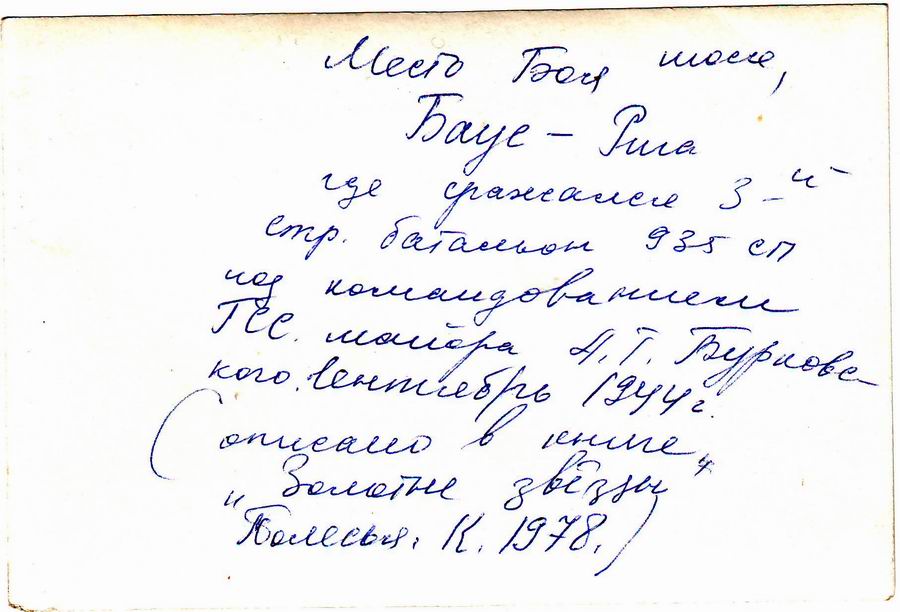 Место Боя шоссе,
Баус – Рига
где сражался 3-й
стр. батальон 935 сп
под командованием
ГСС. майора А.Г. Бурковс-
кого. Сентябрь 1944 г.
(описано в книге
„Золотые звёзды"
Полесья. К. 1978.)